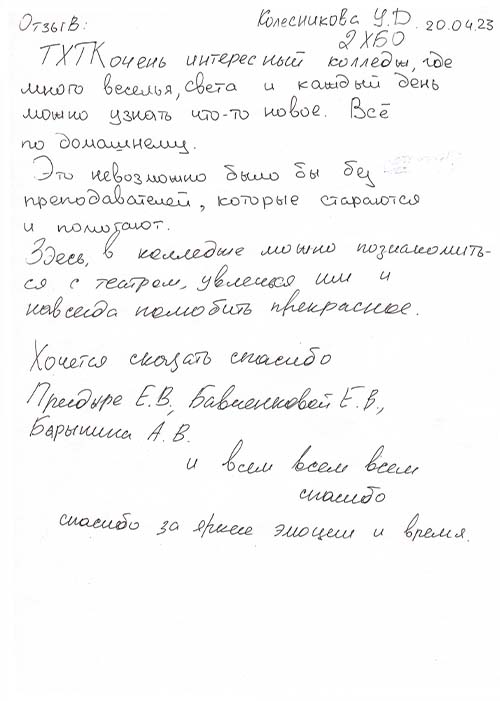 Отзыв: Колесникова У.Д. 20.04.23
2ХБО
ТХТК очень интересный колледж, где
много веселья, света и каждый день
можно узнать что-то новое. Всё
по домашнему.
Это невозможно было бы без
преподавателей, которые стараются
и помогают.
Здесь, в колледже можно познакомить-
ся с театром, увлечься им и
навсегда полюбить прекрасное.
Хочется сказать спасибо
Е.В., Бавченковой Е.В.,
Барышника А.В.
и всем всем всем
спасибо
спасибо за яркие эмоции и время.